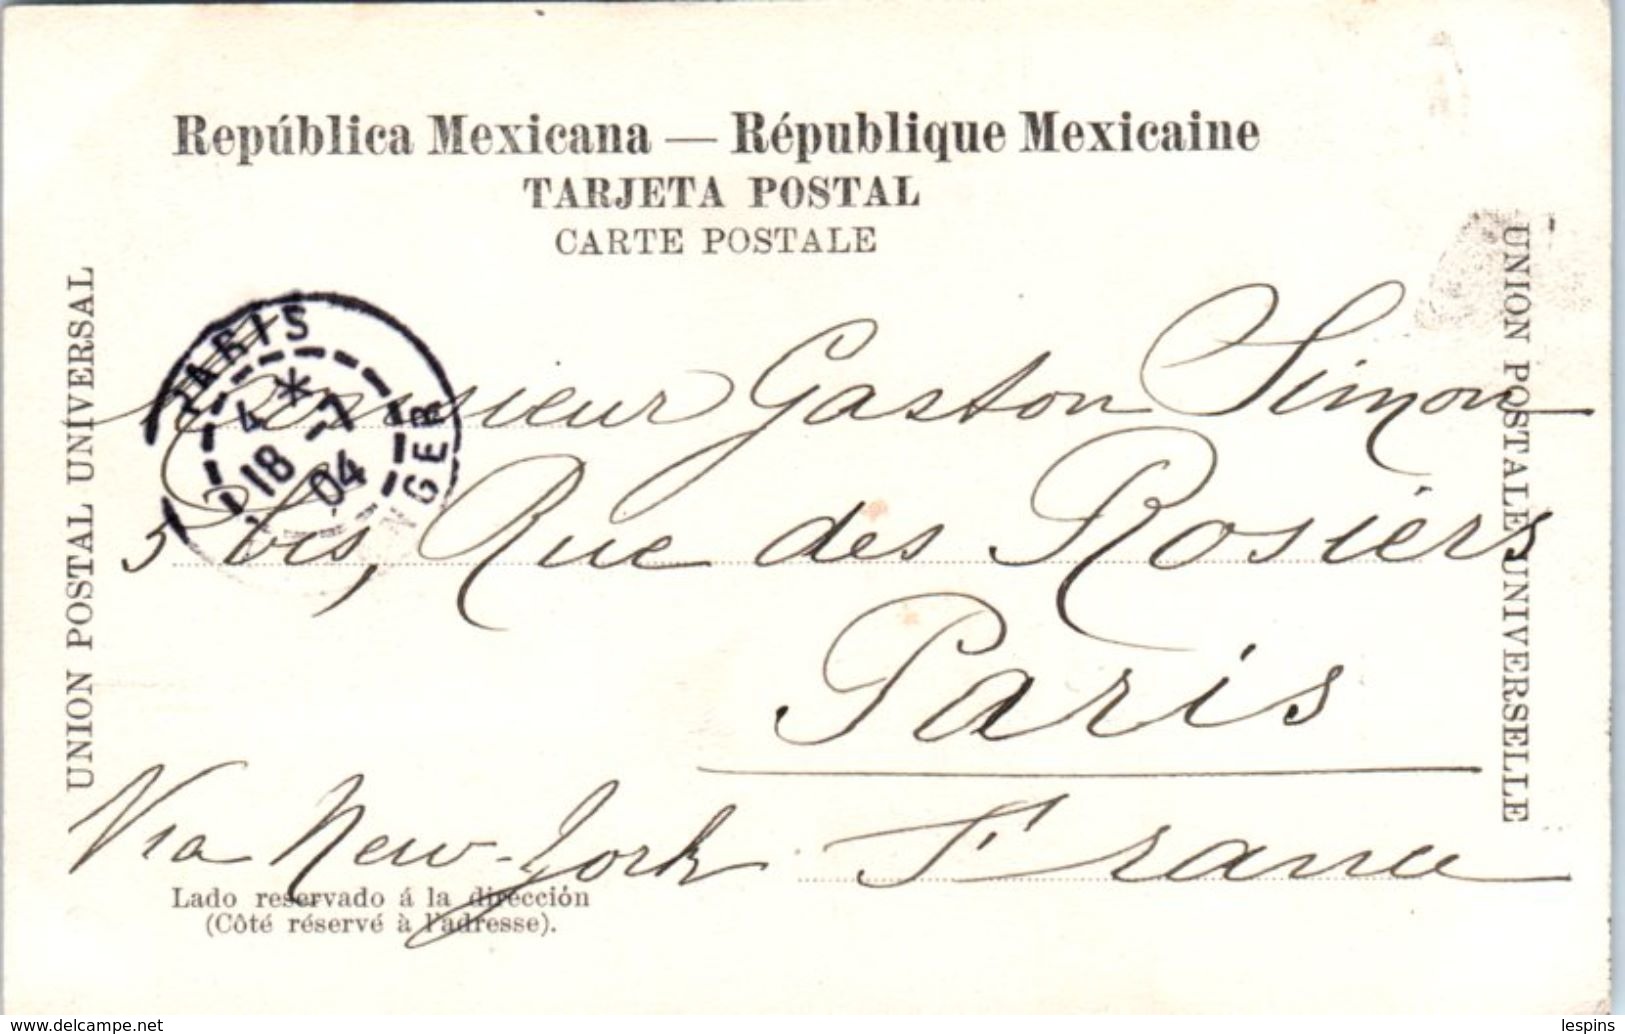 República Mexicana — République Mexicaine
TARJETA POSTAL
CARTE POSTALE
UNION POSTAL UNIVERSAL
UNION POSTALE UNIVERSELLE
PARIS
4 *
18 -7
04
GER
Monsieur Gaston Simon
5 bis, Rue des Rosiers
Paris
Via New-York France
Lado reservado á la dirección
(Côté réservé à l'adresse).
www.delcampe.net
lespins